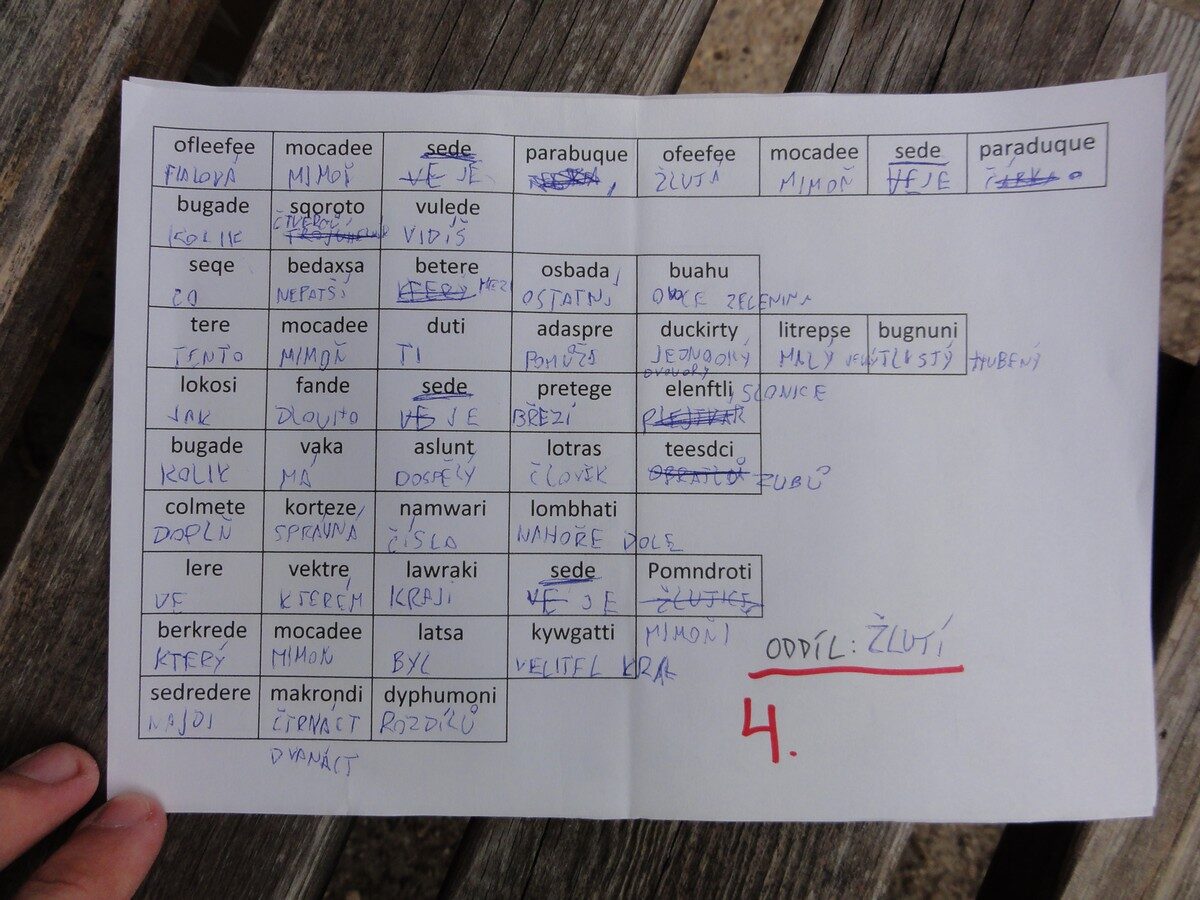 ofleefee mocadee sede parabuque ofeefee mocadee sede paraduque
FIALOVÁ MIMOŇ VE JE , ŽLUTÁ MIMOŇ VE JE ČÁRKA
bugade sqoroto vulede
KOLIK ČTVEREČ VIDÍŠ
seqe bedaxsa betere osbada buahu
CO NEPATŘÍ KTERÝ MEZI OSTATNÍ OVOCE ZELENINA
tere mocadee duti adaspre duckirty litrepse bugnuni
TENTO MIMOŇ TI POMŮŽE JEDNOOKÝ MALÝ TLUSTÝ HUBENÝ
lokosi fande sede pretege elenftli
JAK DLOUHO VE JE BŘEZÍ SLONICE
bugade vaka aslunt lotras teesdci
KOLIK MÁ DOSPĚLÝ ČLOVĚK OBRATLŮ ZUBŮ
colmete korteze namwari lombhati
DOPLŇ SPRÁVNÁ ČÍSLA NAHOŘE DOLE
lere vektre lawraki sede Pomndroti
VE KTERÉM KRAJI VE JE ŽLUTICE
berkrede mocadee latsa kywgatti MIMOŇI
KTERÝ MIMOŇ BYL VELITEL KRÁL
ODDÍL: ŽLUTÍ
sedredere makrondi dyphumoni
NAJDI ČTRNÁCT ROZDÍLŮ
4.
DVANÁCT